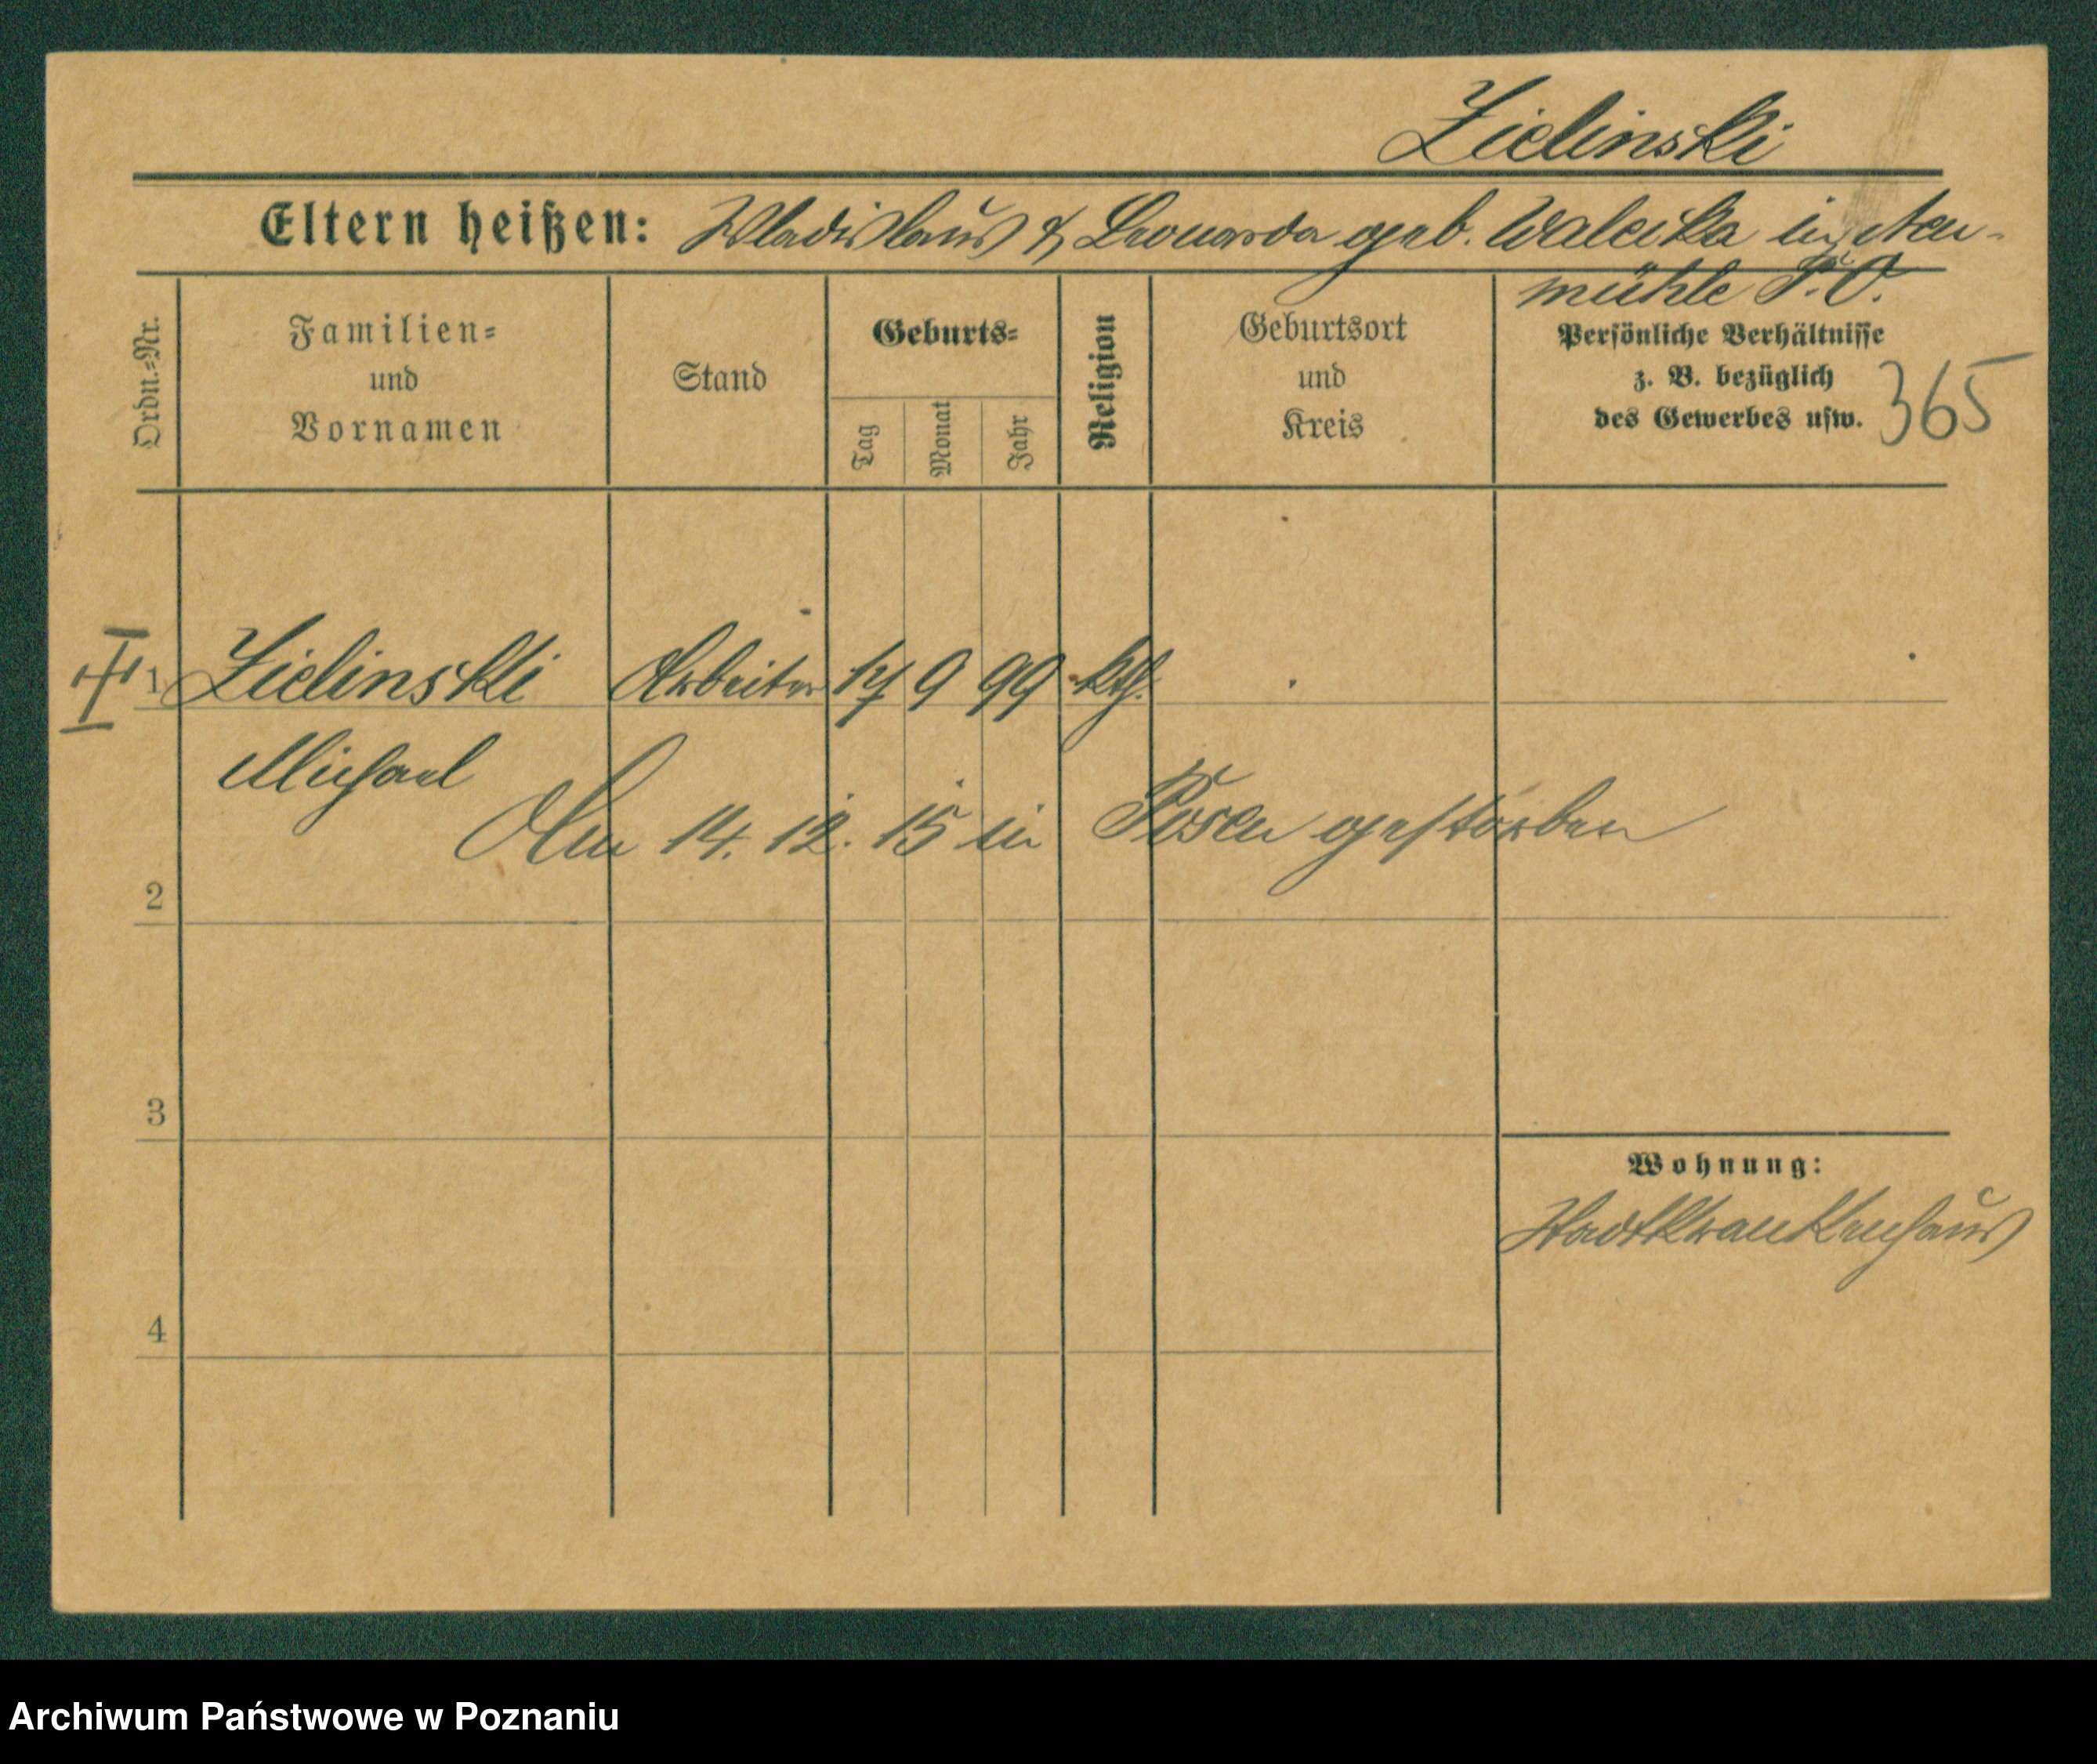 Zielinski
Eltern heißen: Wladislaus & Leonarda geb. Waleika in Neu-
mühle P.O.
Ordn.-Nr.
Familien=
und
Vornamen
Stand
Geburts=
Tag
Monat
Jahr
Religion
Geburtsort
und
Kreis
Persönliche Verhältnisse
z. B. bezüglich
des Gewerbes usw.
365
1 Zielinski Arbeiter 17 9 99 kth.
Michael
Am 14. 12. 15 in Posen gestorben
2
3
Wohnung:
Stadtkrankenhaus
4
Archiwum Państwowe w Poznaniu